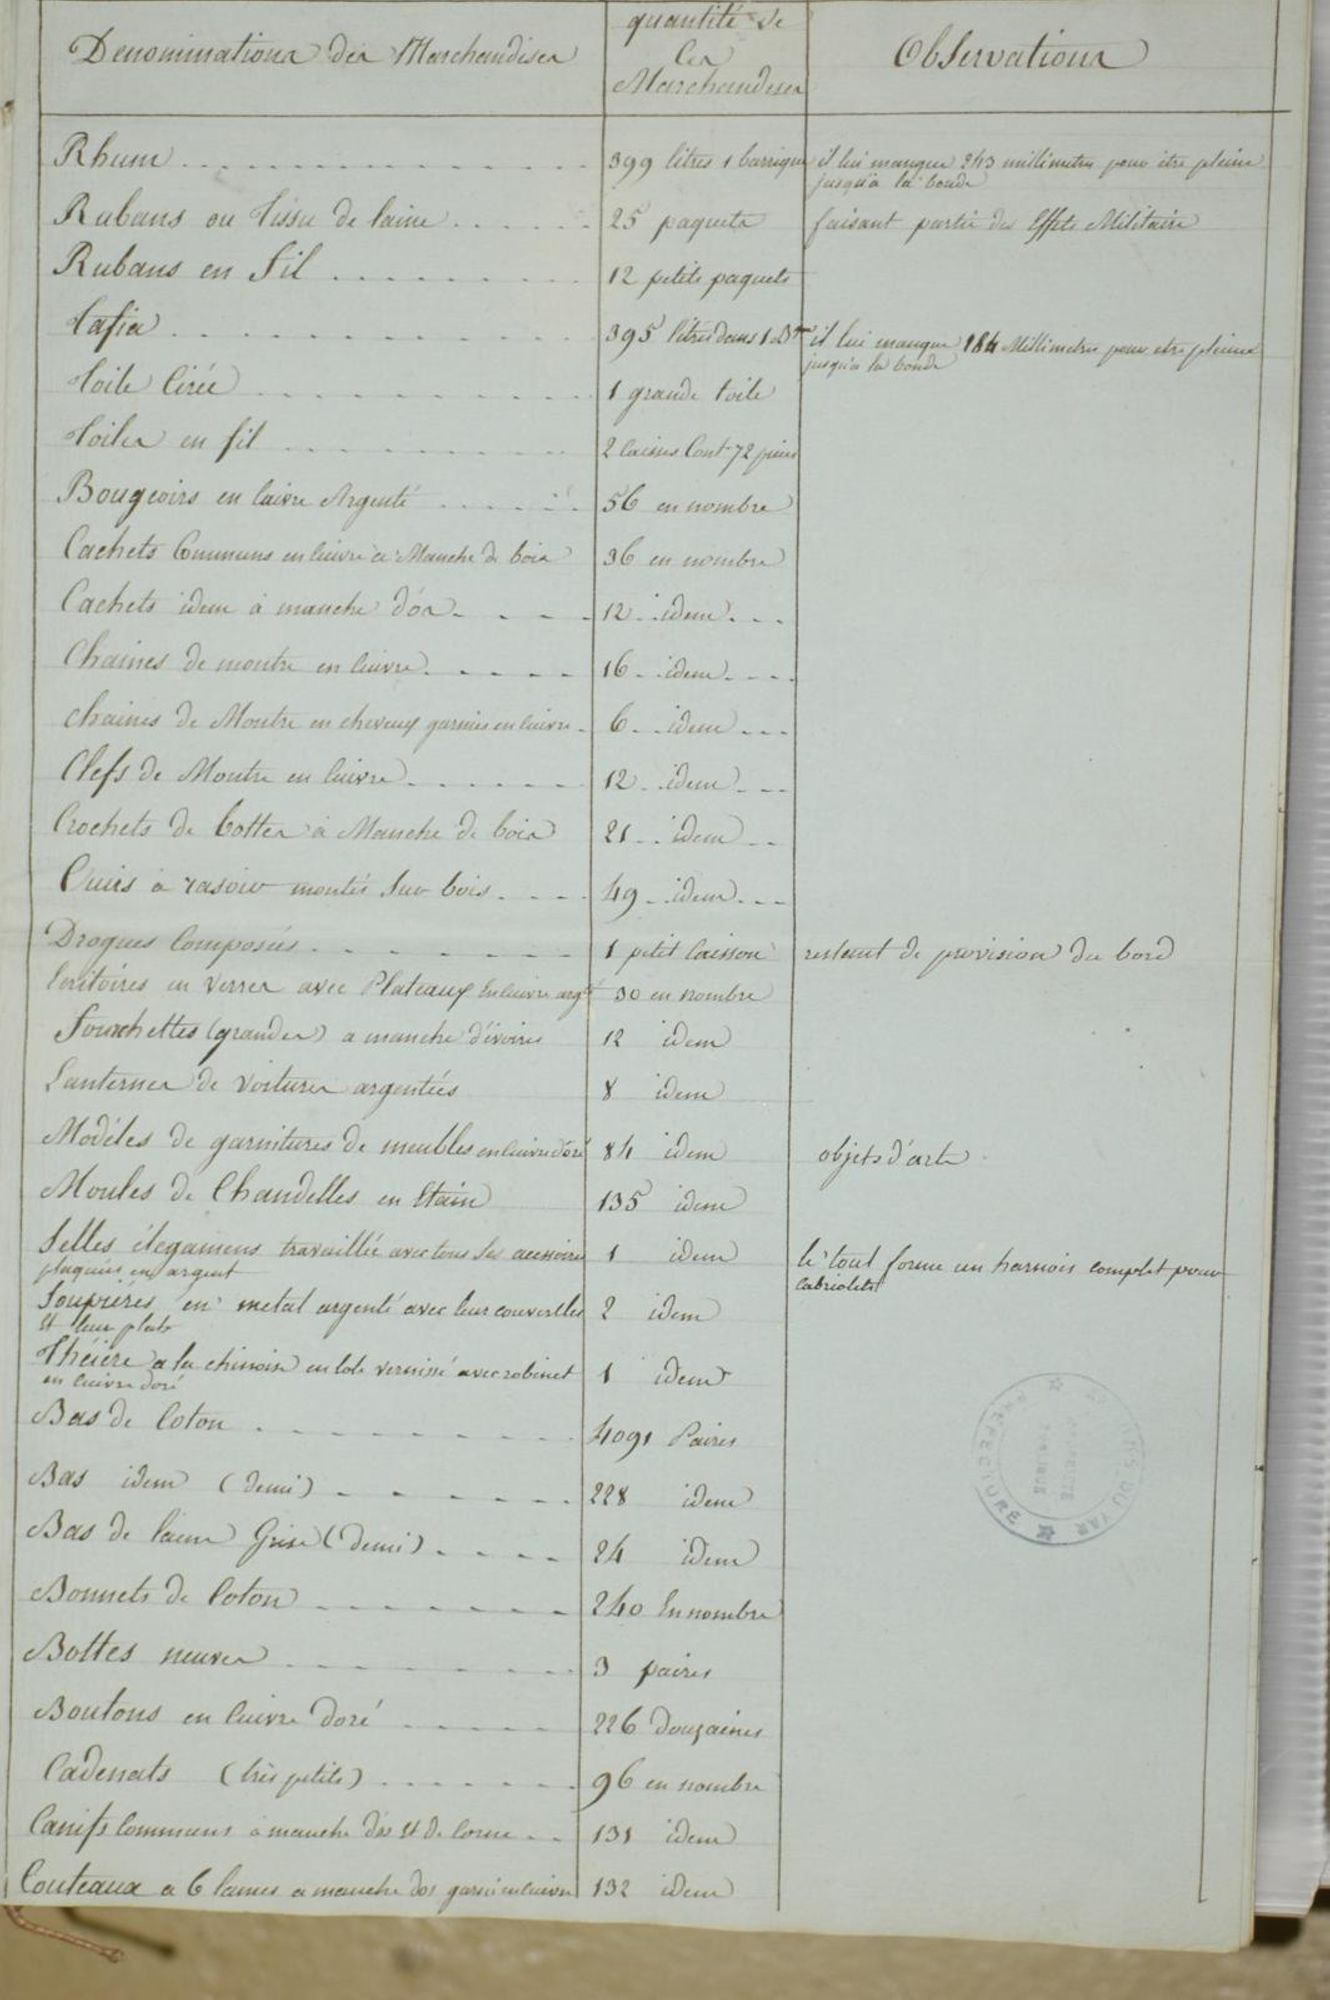 Denominations des Marchandises quantité de Observations
Ces
Marchandises
Rhum 399 litres 1 barrique il lui manque 243 millimetres pour être pleine
jusqu'à la bonde
Rubans ou tissu de laine 25 paquets faisant partie des Effets Militaire
Rubans en fil 12 petits paquets
Tafia 395 litres dans 1 Bque il lui manque 184 Millimetres pour etre pleine
jusqu'à la bonde
Toile Cirée 1 grande toile
Toiles en fil 2 Caisses Cont. 72 pieces
Bougeoirs en Cuivre Argenté 56 en nombre
Cachets Communs en Cuivre à Manche de bois 36 en nombre
Cachets idem à manche d'os 12 idem
Chaines de montre en Cuivre 16 idem
chaines de Montre en cheveux garnies en Cuivre 6 idem
Clefs de Montre en Cuivre 12 idem
Crochets de bottes à Manche de bois 21 idem
Cuirs à rasoir montés sur bois 49 idem
Drogues Composées 1 petit Caisson restant de provision du bord
Ecritoires en Verres avec Plateaux En Cuivre argté 30 en nombre
Fourchettes (grandes) a manche d'ivoire 12 idem
Lanternes de Voitures argentées 8 idem
Modèles de garnitures de meubles en Cuivre doré 84 idem objets d'arts
Moules de Chandelles en Etain 135 idem
Selles élegamens travaillée avec tous ses accessoires 1 idem le tout forme un harnois complet pour
plaqués en argent cabriolets
Soupières en metal argenté avec leur couvercles 2 idem
Et leur plats
Théière a la chinoise en tole vernissé avec robinet 1 idem
en Cuivre doré
Bas de Coton 4091 Paires
Bas idem (demi) 228 idem
Bas de laine Grise (demi) 24 idem
Bonnets de Coton 240 En nombre
Bottes neuves 3 paires
Boutons en Cuivre doré 226 Douzaines
Cadenats (très petits) 96 en nombre
Canifs Communs à manche d'os Et de Corne 131 idem
Couteaux a 6 lames a manche d'os garni en Cuivre 132 idem
PREFECTURE DU VAR